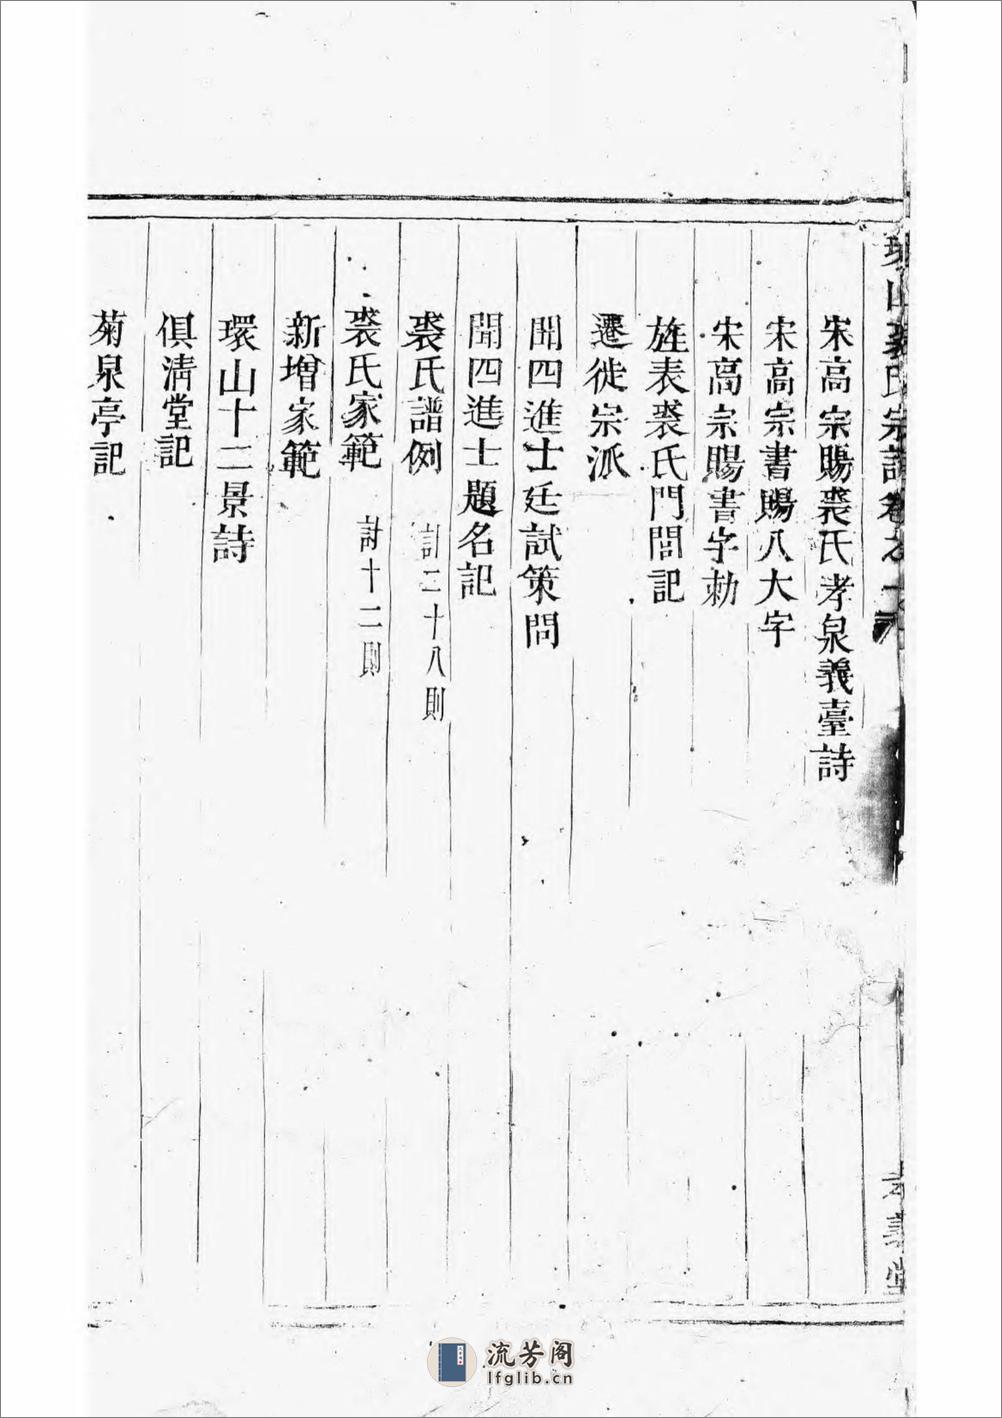 環山裘氏宗譜卷之一
宋高宗賜裘氏孝泉義臺詩
宋高宗書賜八大字
宋高宗賜書字勅
旌表裘氏門閭記
遷徙宗派
聞四進士廷試策問
聞四進士題名記
裘氏譜例 計二十八則
裘氏家範 計十二則
新增家範
環山十二景詩
俱清堂記
菊泉亭記
孝義堂
流芳阁
lfglib.cn